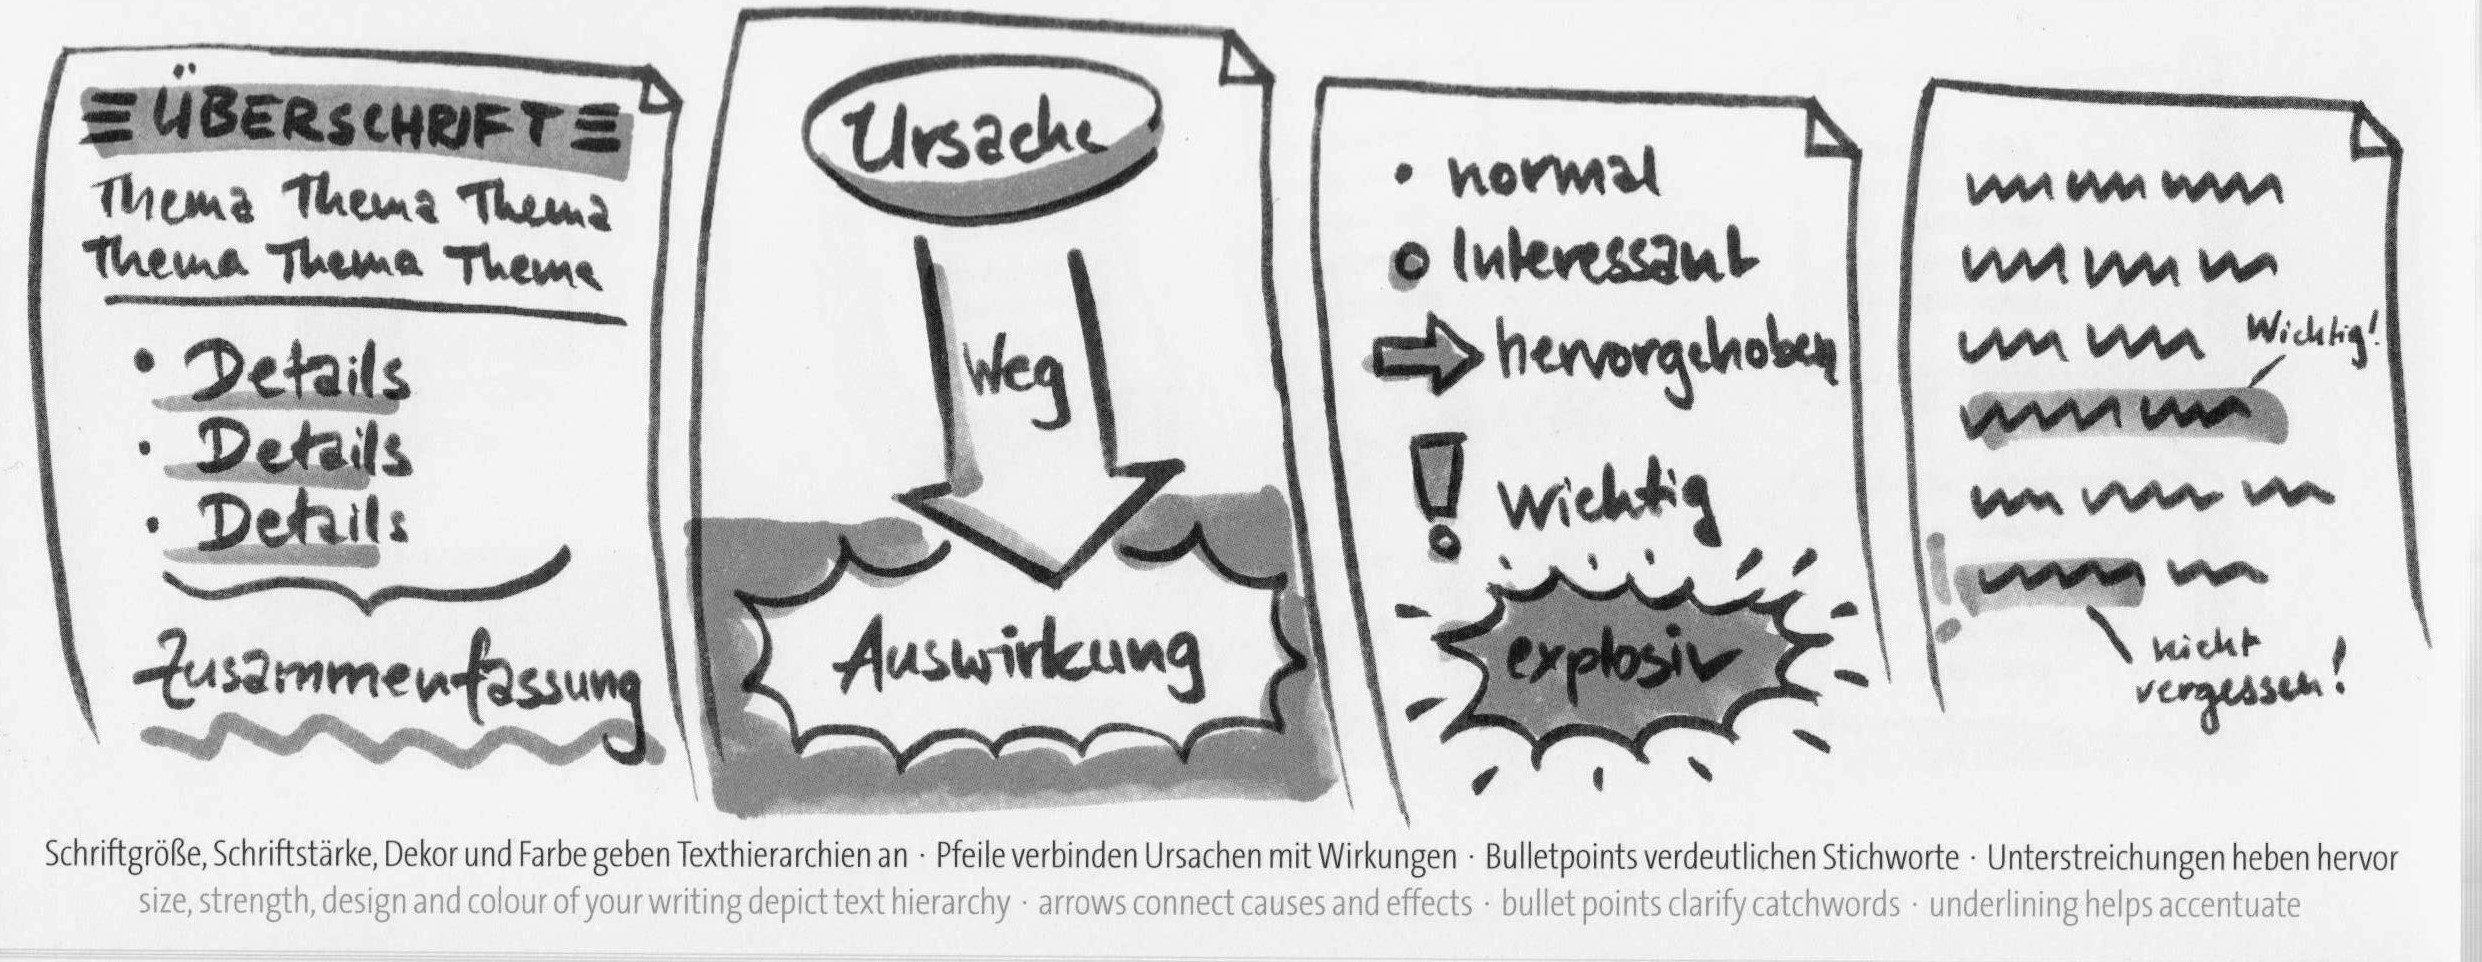 ÜBERSCHRIFT
Thema Thema Thema
Thema Thema Thema
• Details
• Details
• Details
Zusammenfassung
Ursache
Weg
Auswirkung
• normal
Interessant
hervorgehoben
! wichtig
explosiv
Wichtig!
nicht
vergessen!
Schriftgröße, Schriftstärke, Dekor und Farbe geben Texthierarchien an · Pfeile verbinden Ursachen mit Wirkungen · Bulletpoints verdeutlichen Stichworte · Unterstreichungen heben hervor
size, strength, design and colour of your writing depict text hierarchy · arrows connect causes and effects · bullet points clarify catchwords · underlining helps accentuate